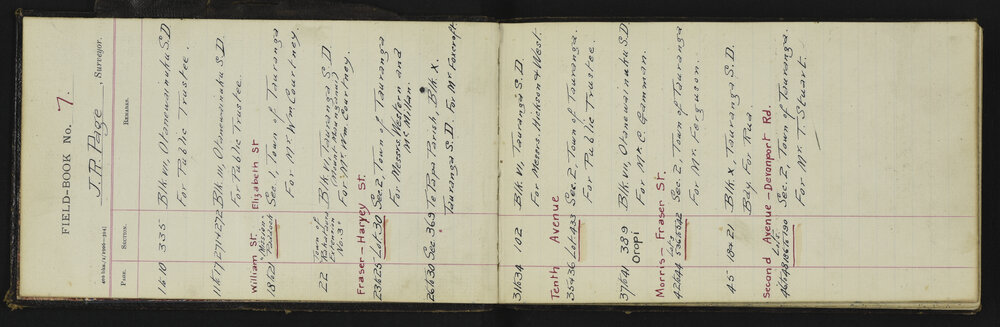 FIELD-BOOK No. 7.
J. R. Page, Surveyor.
PAGE. SECTION. REMARKS.
1 to 10 335 Blk VII, Otanewainuku S.D
For Public Trustee.
11 to 17 271 & 272 Blk VII, Otanewainuku S.D.
For Public Trustee.
William St. Elizabeth St
18 to 21 "Mission Paddock" Sec. 1, Town of Tauranga
For Mr Wm Courtney.
22 Town of Extension No. 3" Blk VII, Tauranga S.D
Mount Maunganui
For Mr. Wm. Courtney
Fraser-Harvey St.
23 to 25 Lot 30 Sec. 2, Town of Tauranga
For Messrs. Western and
McMillan.
26 to 30 Sec 369 Te Papa Parish, Blk. X.
Tauranga S.D. For Mr
31 to 34 102 Blk. VII, Tauranga S.D.
For Messrs. Hickson & West.
Tenth Avenue
35 & 36 Lot 433 Sec. 2, Town of Tauranga.
For Public Trustee.
37 to 41 389 Blk VII, Otanewainuku S.D
Oropi For Mr C. Gamman
Morris-Fraser St.
42 to 44 Lots Sec. 2, Town of Tauranga
For Mr. Ferguson.
45 Blk X, Tauranga S.D.
Bay. For Rua
Second Avenue-Devonport Rd.
Lots Sec. 2, Town of Tauranga.
For Mr. T. Stuart.